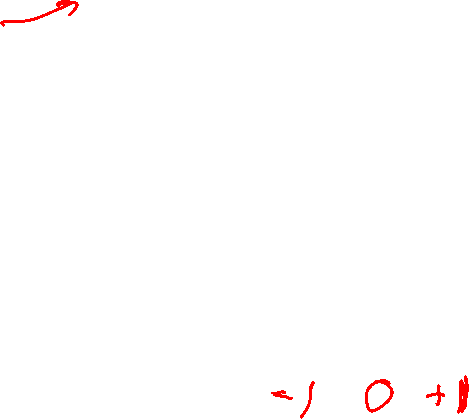 -1 0 +1